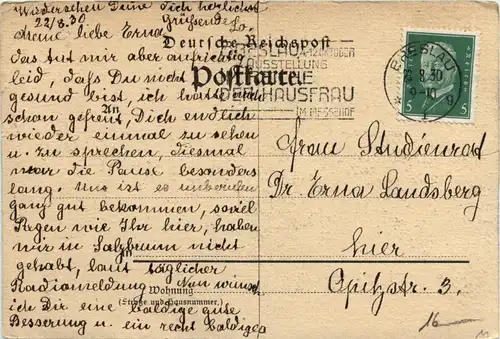 Wiedersehen Deine Dich herzlichst
22/8.30 Grüssende Lo.
Meine liebe Erna,
das tut mir aber aufrichtig
leid, daß Du nicht
gesund bist, ich hatte mich
schon gefreut, Dich endlich
wieder einmal zu sehen
u. zu sprechen, diesmal
war die Pause besonders
lang. Uns ist es unberufen
ganz gut bekommen, soviel
Regen wie Ihr hier, haben
wir in Salzbrunn nicht
gehabt, laut täglicher
Radiomeldung. Nun wünsch
ich Dir eine baldige gute
Besserung u. ein recht baldiges
Deutsche Reichspost
Postkarte
An
in
Wohnung
(Straße und Hausnummer)
BRESLAU
AUSSTELLUNG
DIE
DER HAUSFRAU
IM MESSEHOF
BRESLAU
8.30
9-10
1
g
5 5
Frau Studienrat
Dr Erna Landsberg
hier
Opitzstr. 3.
16